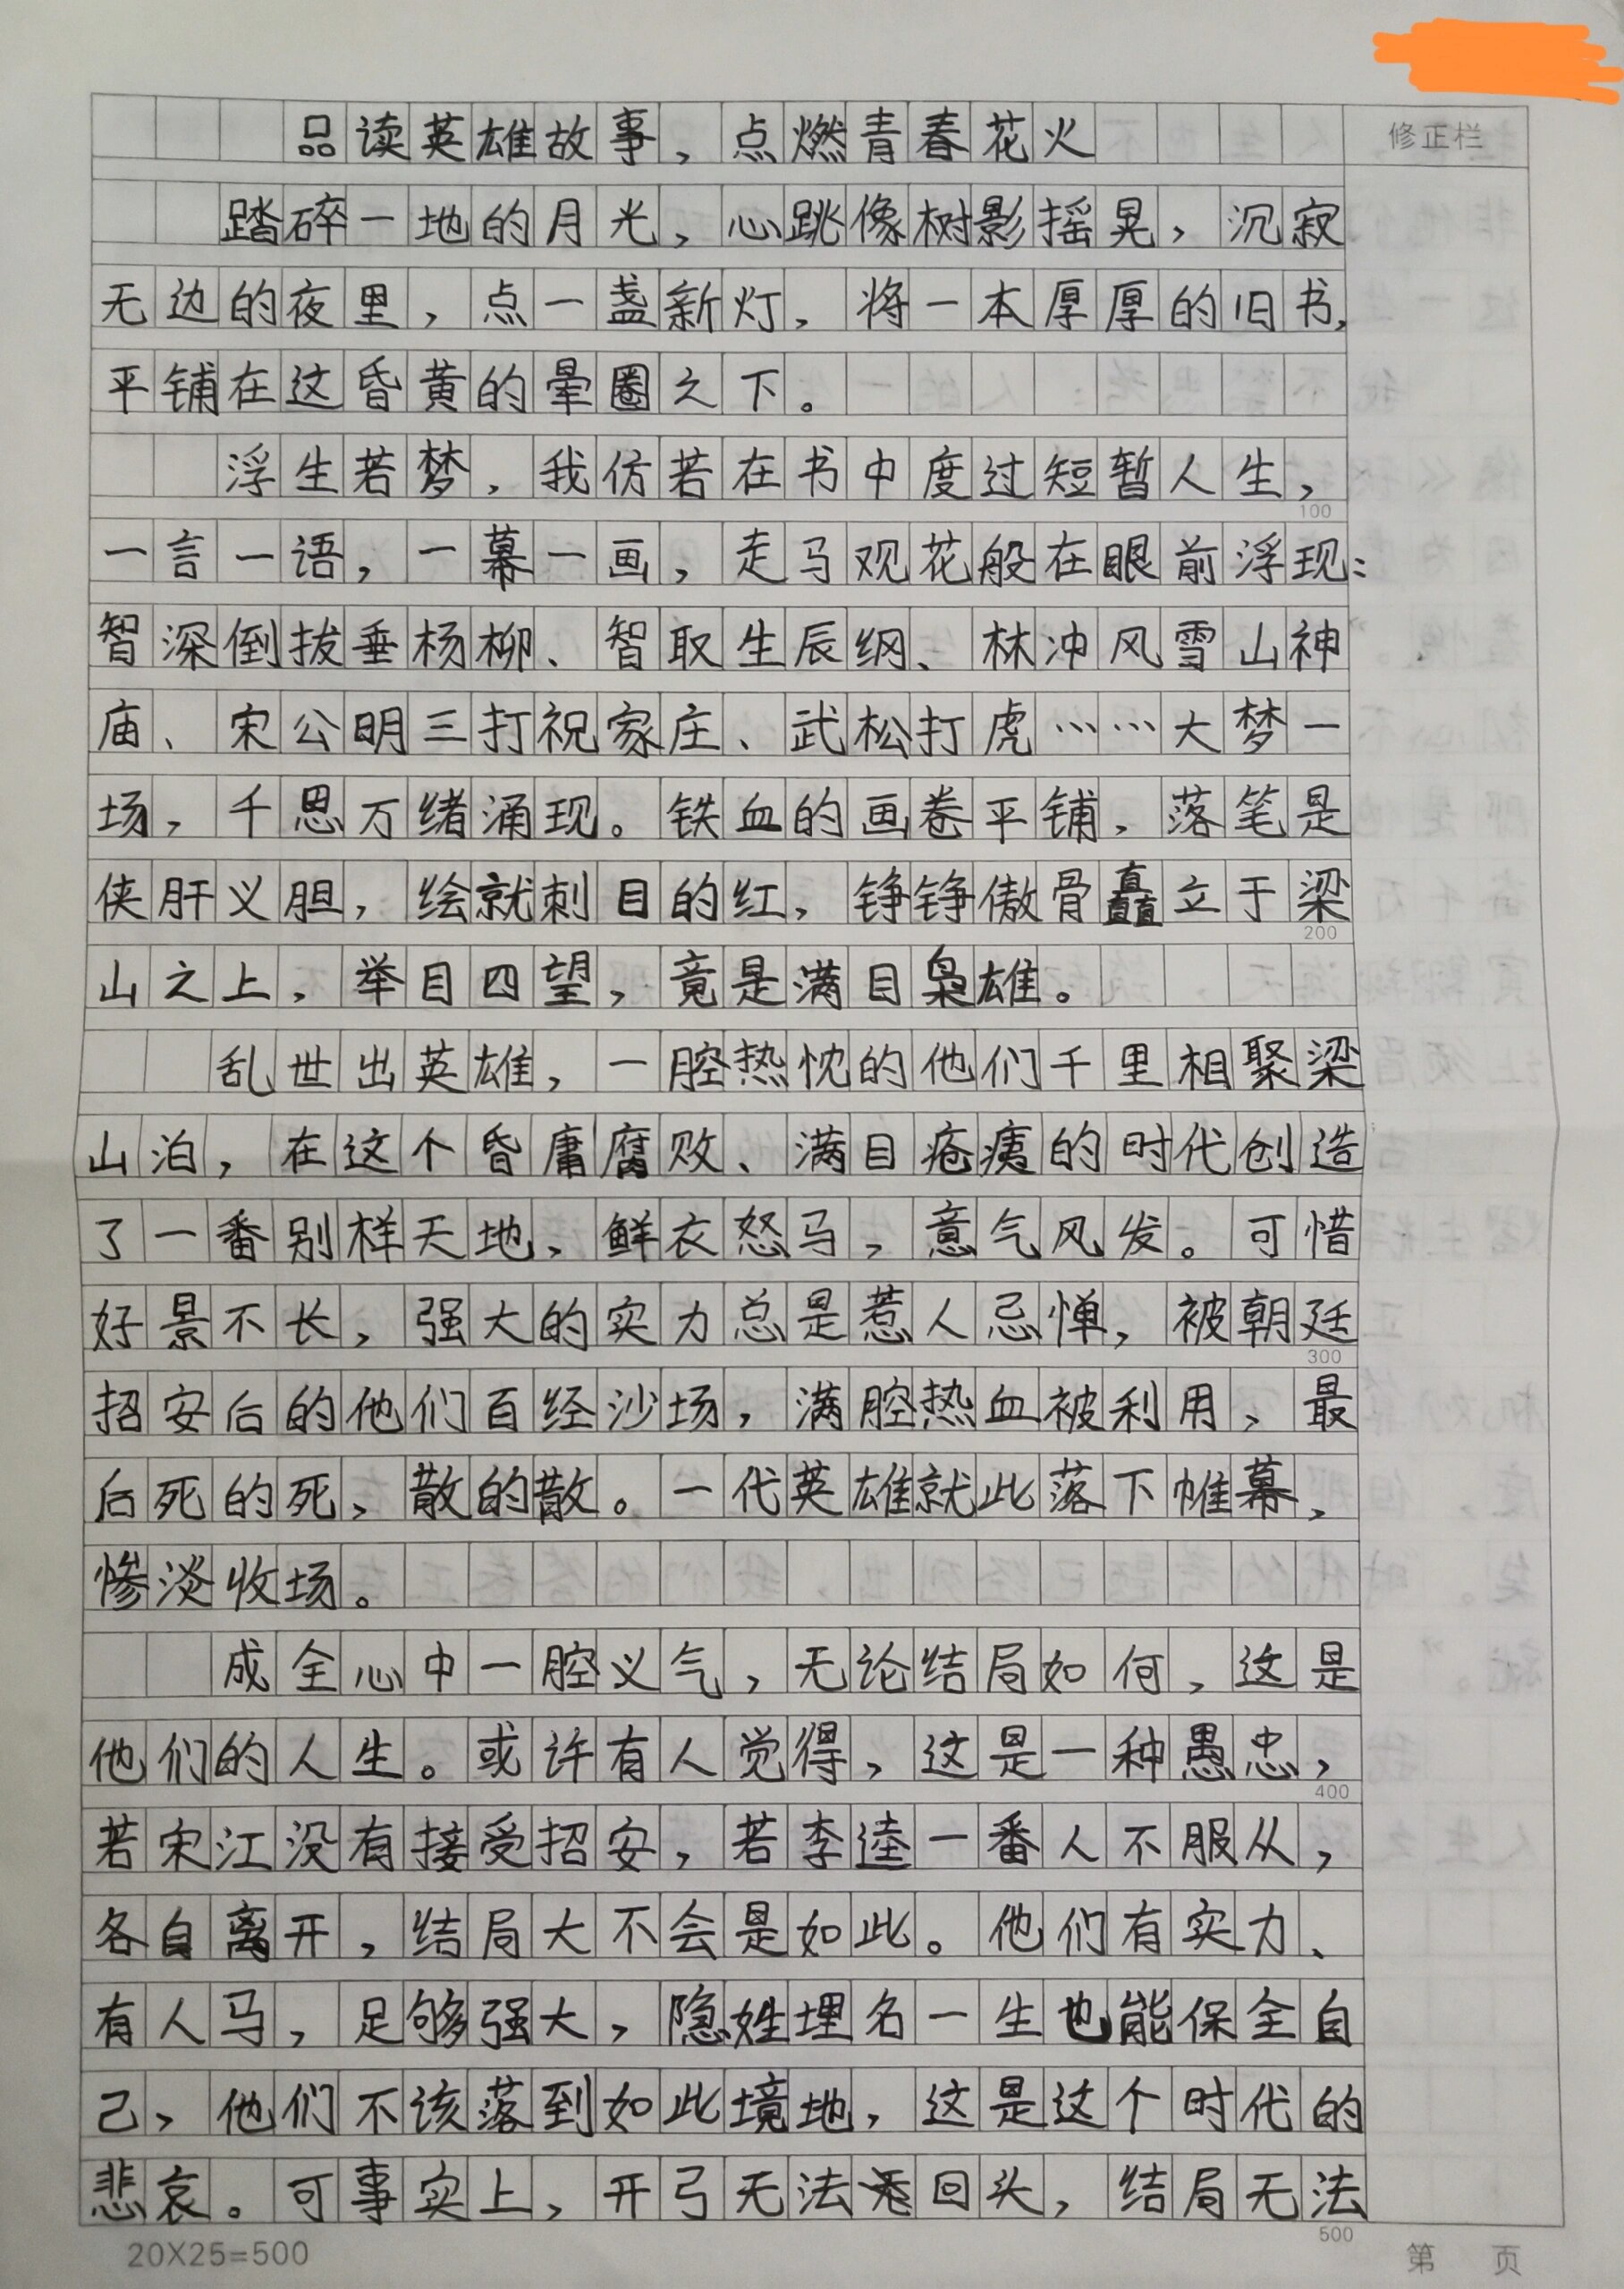 品读英雄故事，点燃青春花火
修正栏
踏碎一地的月光，心跳像树影摇晃，沉寂
无边的夜里，点一盏新灯，将一本厚厚的旧书，
平铺在这昏黄的晕圈之下。
浮生若梦，我仿若在书中度过短暂人生，
100
一言一语，一幕一画，走马观花般在眼前浮现：
智深倒拔垂杨柳、智取生辰纲、林冲风雪山神
庙、宋公明三打祝家庄、武松打虎……大梦一
场，千思万绪涌现。铁血的画卷平铺，落笔是
侠肝义胆，绘就刺目的红，铮铮傲骨矗立于梁
200
山之上，举目四望，竟是满目枭雄。
乱世出英雄，一腔热忱的他们千里相聚梁
山泊，在这个昏庸腐败、满目疮痍的时代创造
了一番别样天地，鲜衣怒马，意气风发。可惜
好景不长，强大的实力总是惹人忌惮，被朝廷
300
招安后的他们百经沙场，满腔热血被利用，最
后死的死，散的散。一代英雄就此落下帷幕，
惨淡收场。
成全心中一腔义气，无论结局如何，这是
他们的人生。或许有人觉得，这是一种愚忠，
400
若宋江没有接受招安，若李逵一番人不服从，
各自离开，结局大不会是如此。他们有实力、
有人马，足够强大，隐姓埋名一生也能保全自
己，他们不该落到如此境地，这是这个时代的
悲哀。可事实上，开弓无法回头，结局无法
500
20X25=500
第 页